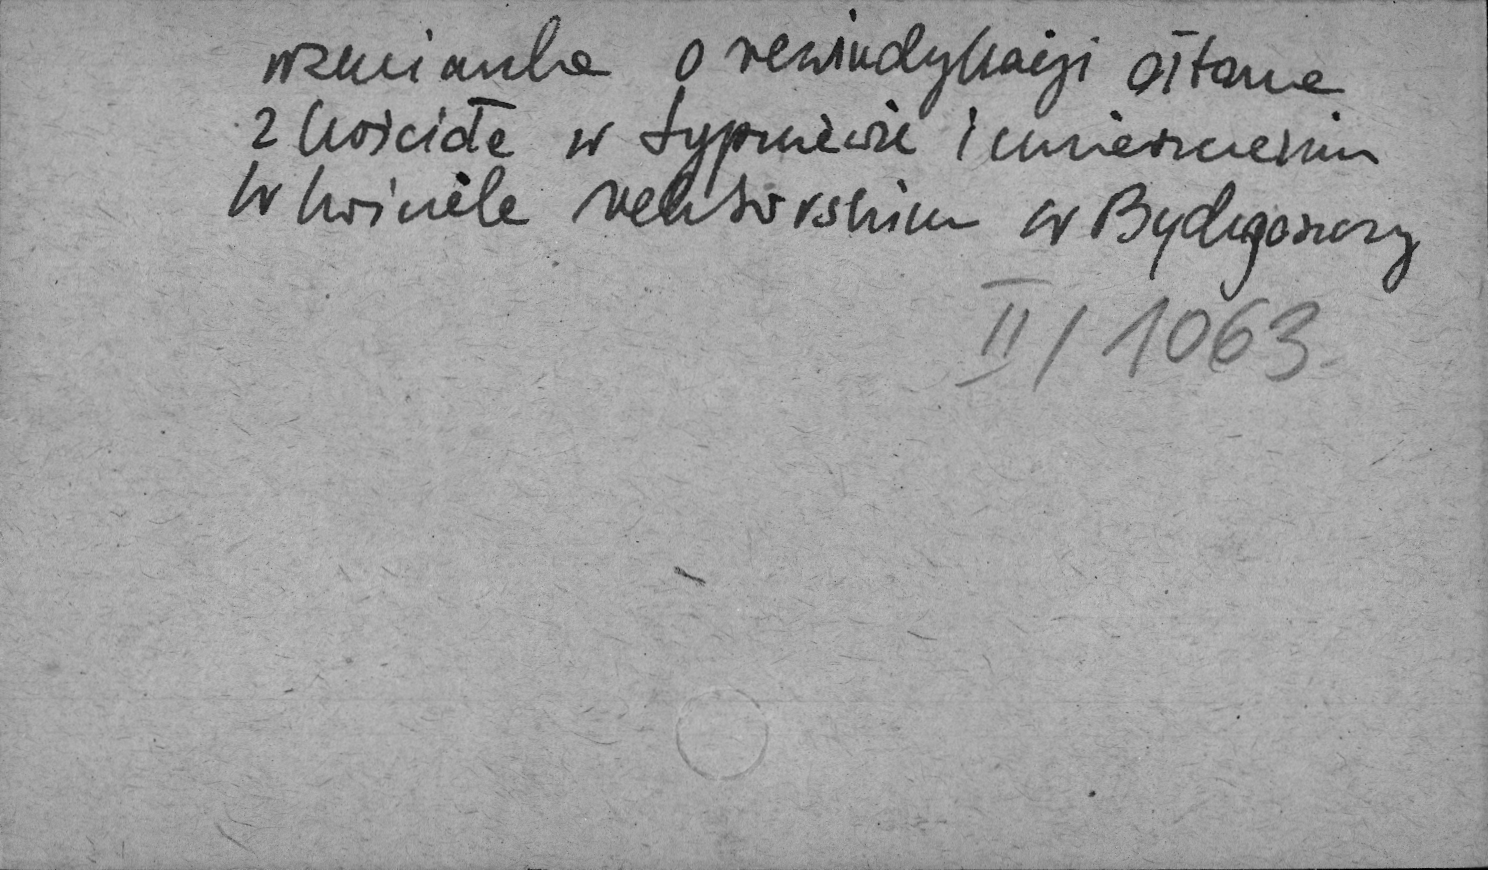 wzmianka o rewindykacji ołtarza
z kościoła w Sypniewie i umieszczeniu
w kościele rektorskim w Bydgoszczy
II/1063.